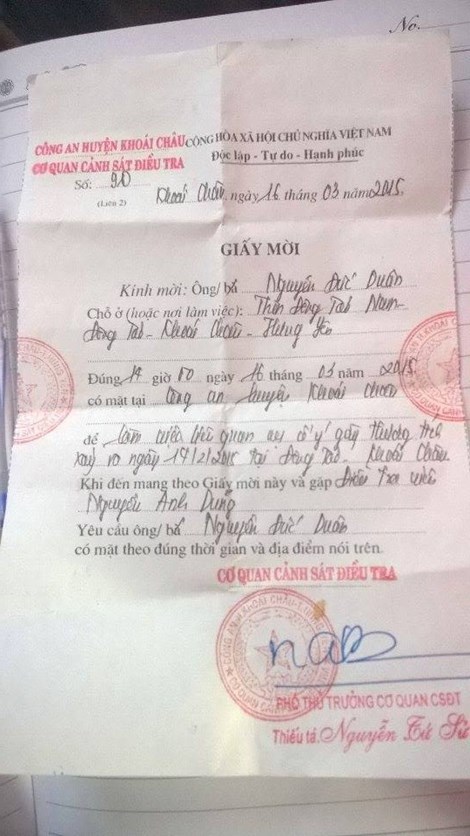 No.
CÔNG AN HUYỆN KHOÁI CHÂU CỘNG HÒA XÃ HỘI CHỦ NGHĨA VIỆT NAM
CƠ QUAN CẢNH SÁT ĐIỀU TRA Độc lập - Tự do - Hạnh phúc
Số: 90
(Liên 2) Khoái Châu, ngày 16 tháng 03 năm 2015.
GIẤY MỜI
Kính mời: Ông/ bà Nguyễn Đức Duân
Chỗ ở (hoặc nơi làm việc): Thôn Đông Tảo Nam-
Đông Tảo - Khoái Châu - Hưng Yên
Đúng 14 giờ 00 ngày 16 tháng 03 năm 2015.
có mặt tại Công an huyện Khoái Châu
để Làm việc liên quan vụ cố ý gây thương tích
xảy ra ngày 17/2/2015 tại Đông Tảo - Khoái Châu
Khi đến mang theo Giấy mời này và gặp Điều Tra viên
Nguyễn Anh Dũng
Yêu cầu ông/ bà Nguyễn Đức Duân
có mặt theo đúng thời gian và địa điểm nói trên.
CƠ QUAN CẢNH SÁT ĐIỀU TRA
PHÓ THỦ TRƯỞNG CƠ QUAN CSĐT
Thiếu tá. Nguyễn